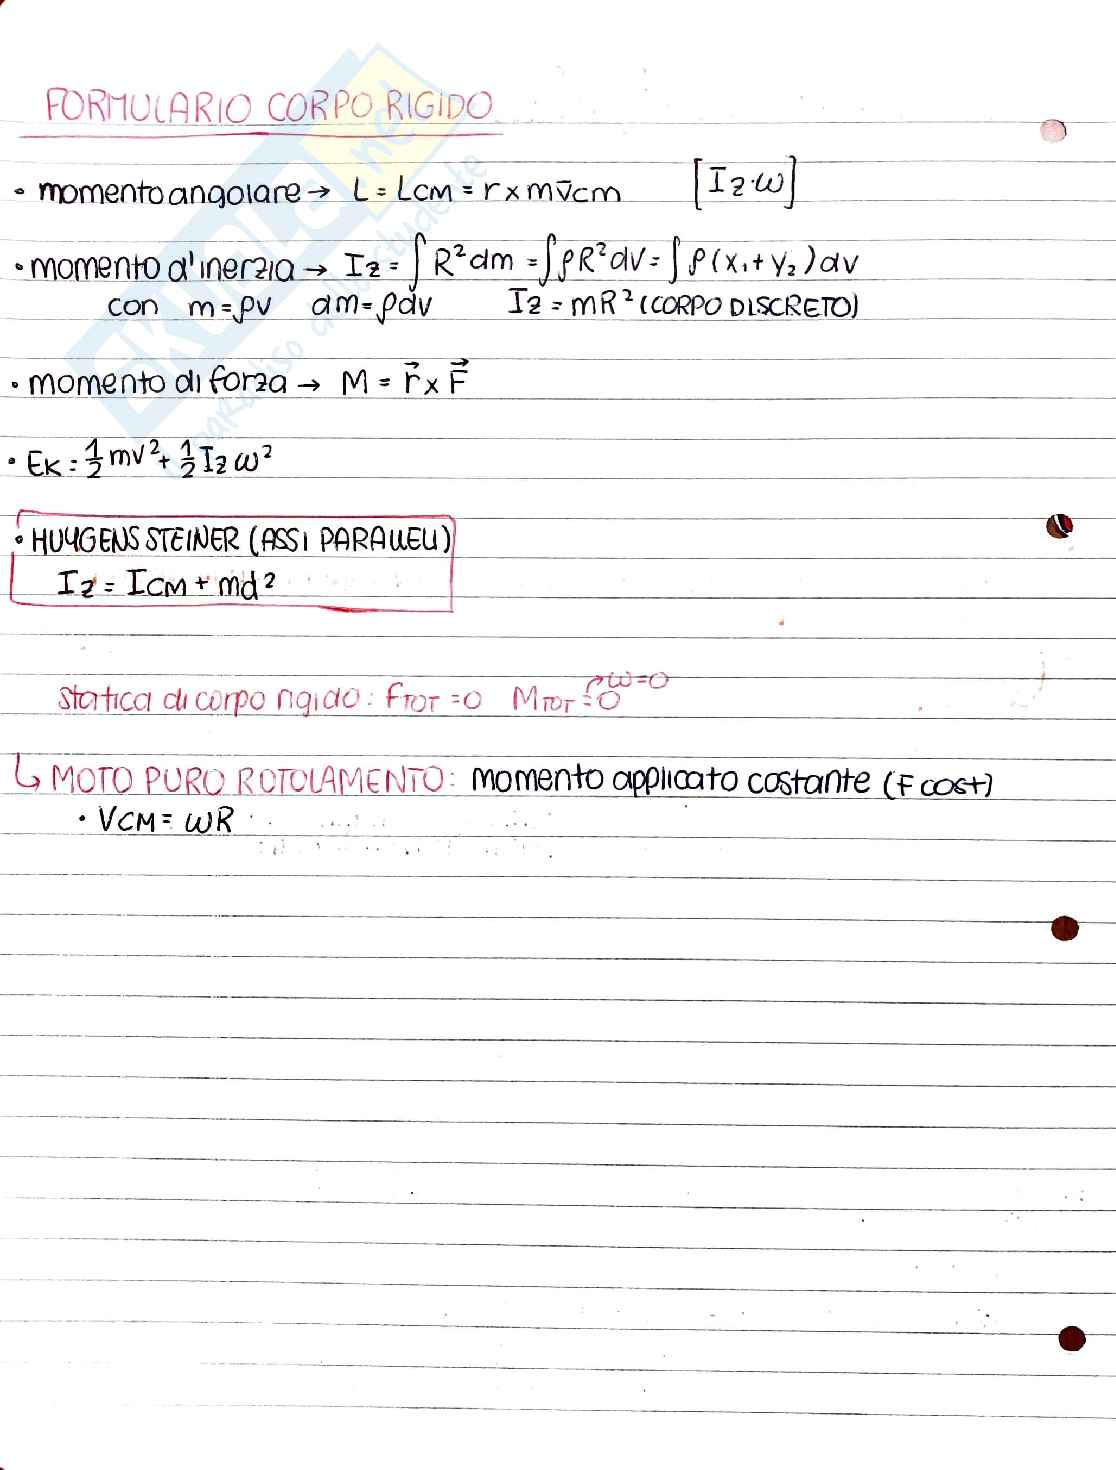 FORMULARIO CORPO RIGIDO
• momento angolare → L = LCM = r x mv̄cm [Iz·ω]
• momento d'inerzia → Iz = ∫R²dm = ∫ρR²dV = ∫ρ(x₁+y₂)dv
con m=ρv dm=ρdv Iz = mR² (CORPO DISCRETO)
• momento di forza → M = r⃗ x F⃗
• EK = 1/2 mv² + 1/2 Iz ω²
• HUYGENS STEINER (ASSI PARALLELI)
Iz = ICM + md²
Statica di corpo rigido: FTOT = 0 MTOT = 0 → ω=0
↳ MOTO PURO ROTOLAMENTO: momento applicato costante (F cost)
• VCM = ωR
skuola.net
il paradiso dello studente